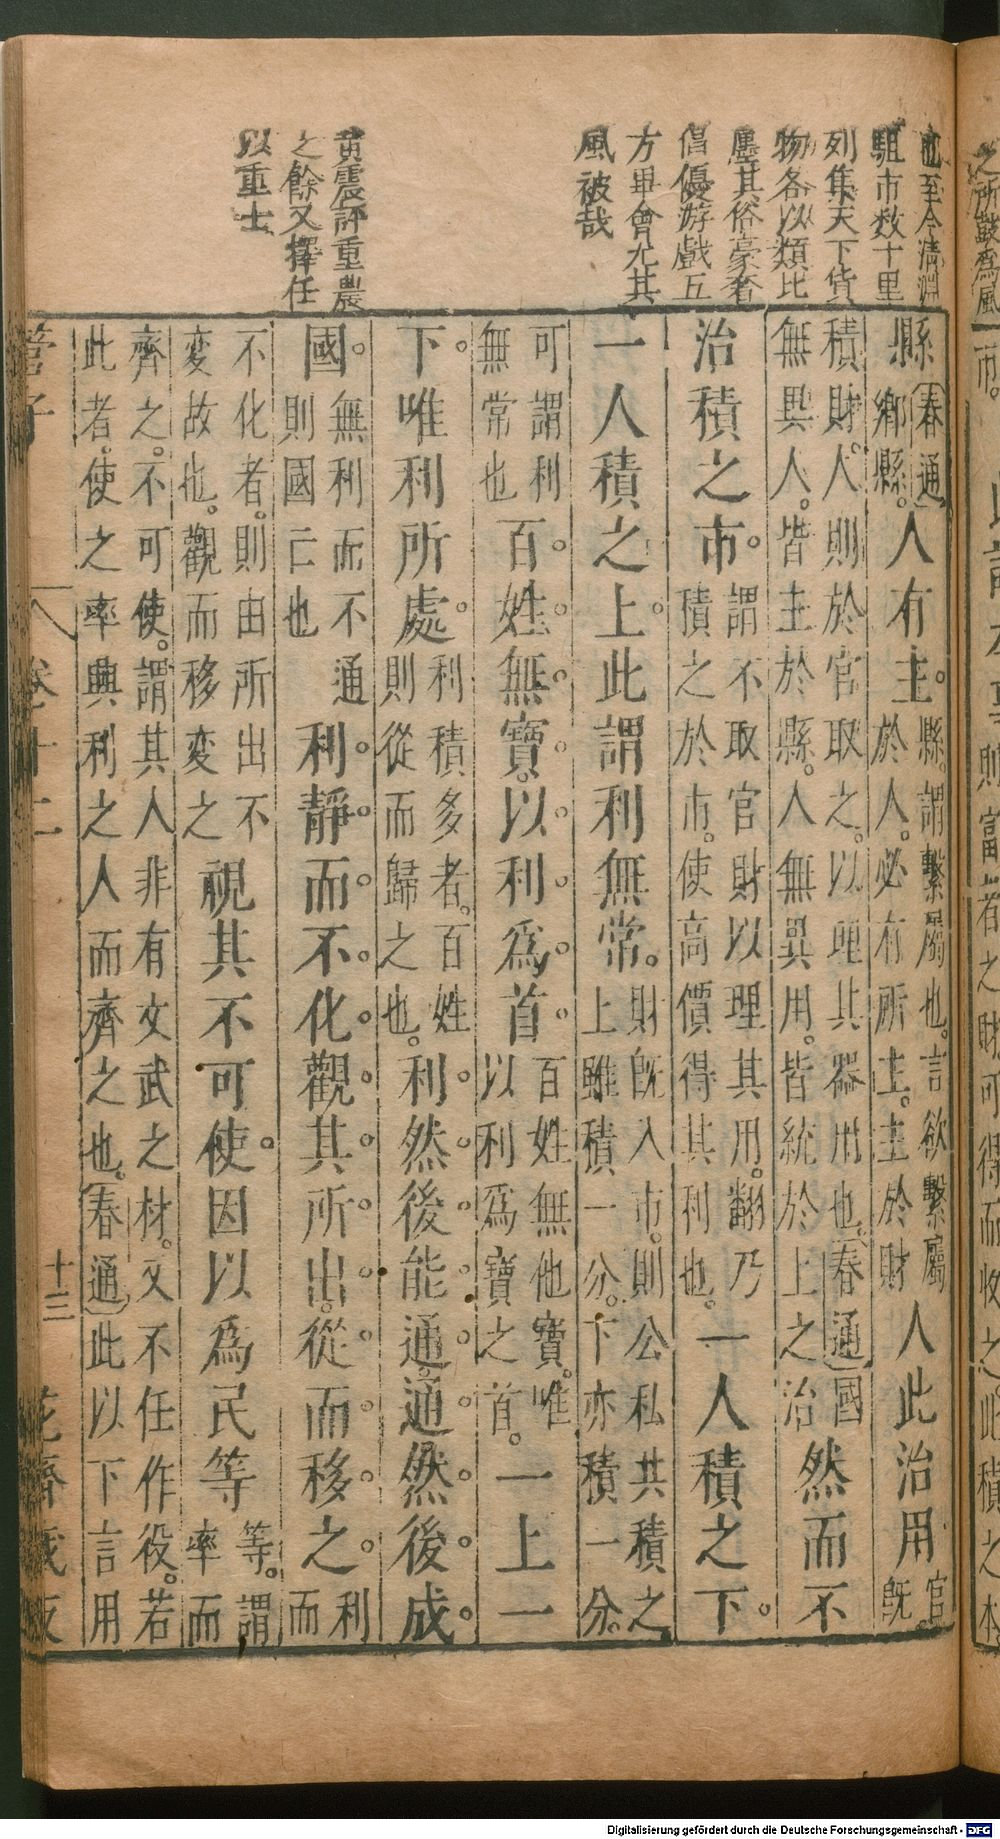 也至今清淵
駔市数十里
列集天下貨
物各以類比
廛其俗豪奢
倡優游戲五
方畢會尤其
風被哉
黃震評重農
之餘又擇任
以重士
縣
春通
鄉縣。
人有主。
縣。謂繫屬也。言欲繫屬
於人。必有所主。主於財
人此治用
官
旣
積財。人則於官取之。以理其器用也。春通國
無異人。皆主於縣。人無異用。皆統於上之治
然而不
治積之市。
謂不取官財以理其用。翻乃
積之於市。使高價得其利也。
一人積之下。
一人積之上。此謂利無常。
財旣入市。則公私共積之
上雖積一分。下亦積一分。
可謂利
無常也
百姓無寶。以利爲首。
百姓無他寶。唯
以利爲寶之首。
一上一
下。唯利所處。
利積多者。百姓
則從而歸之也。
利然後能通。通然後成
國。
無利而不通
則國亡也
利靜而不化。觀其所出。從而移之。
利
而
不化者。則由所出不
変故也。觀而移変之
視其不可使。因以爲民等
等。謂
率而
齊之。不可使。謂其人非有文武之材。又不任作役。若
此者。使之率興利之人而齊之也。春通此以下言用
管子
卷十二
十三
花齋藏板
之所鼓爲風
市。
則富者之財可得而收之此積之本
Digitalisierung gefördert durch die Deutsche Forschungsgemeinschaft - DFG